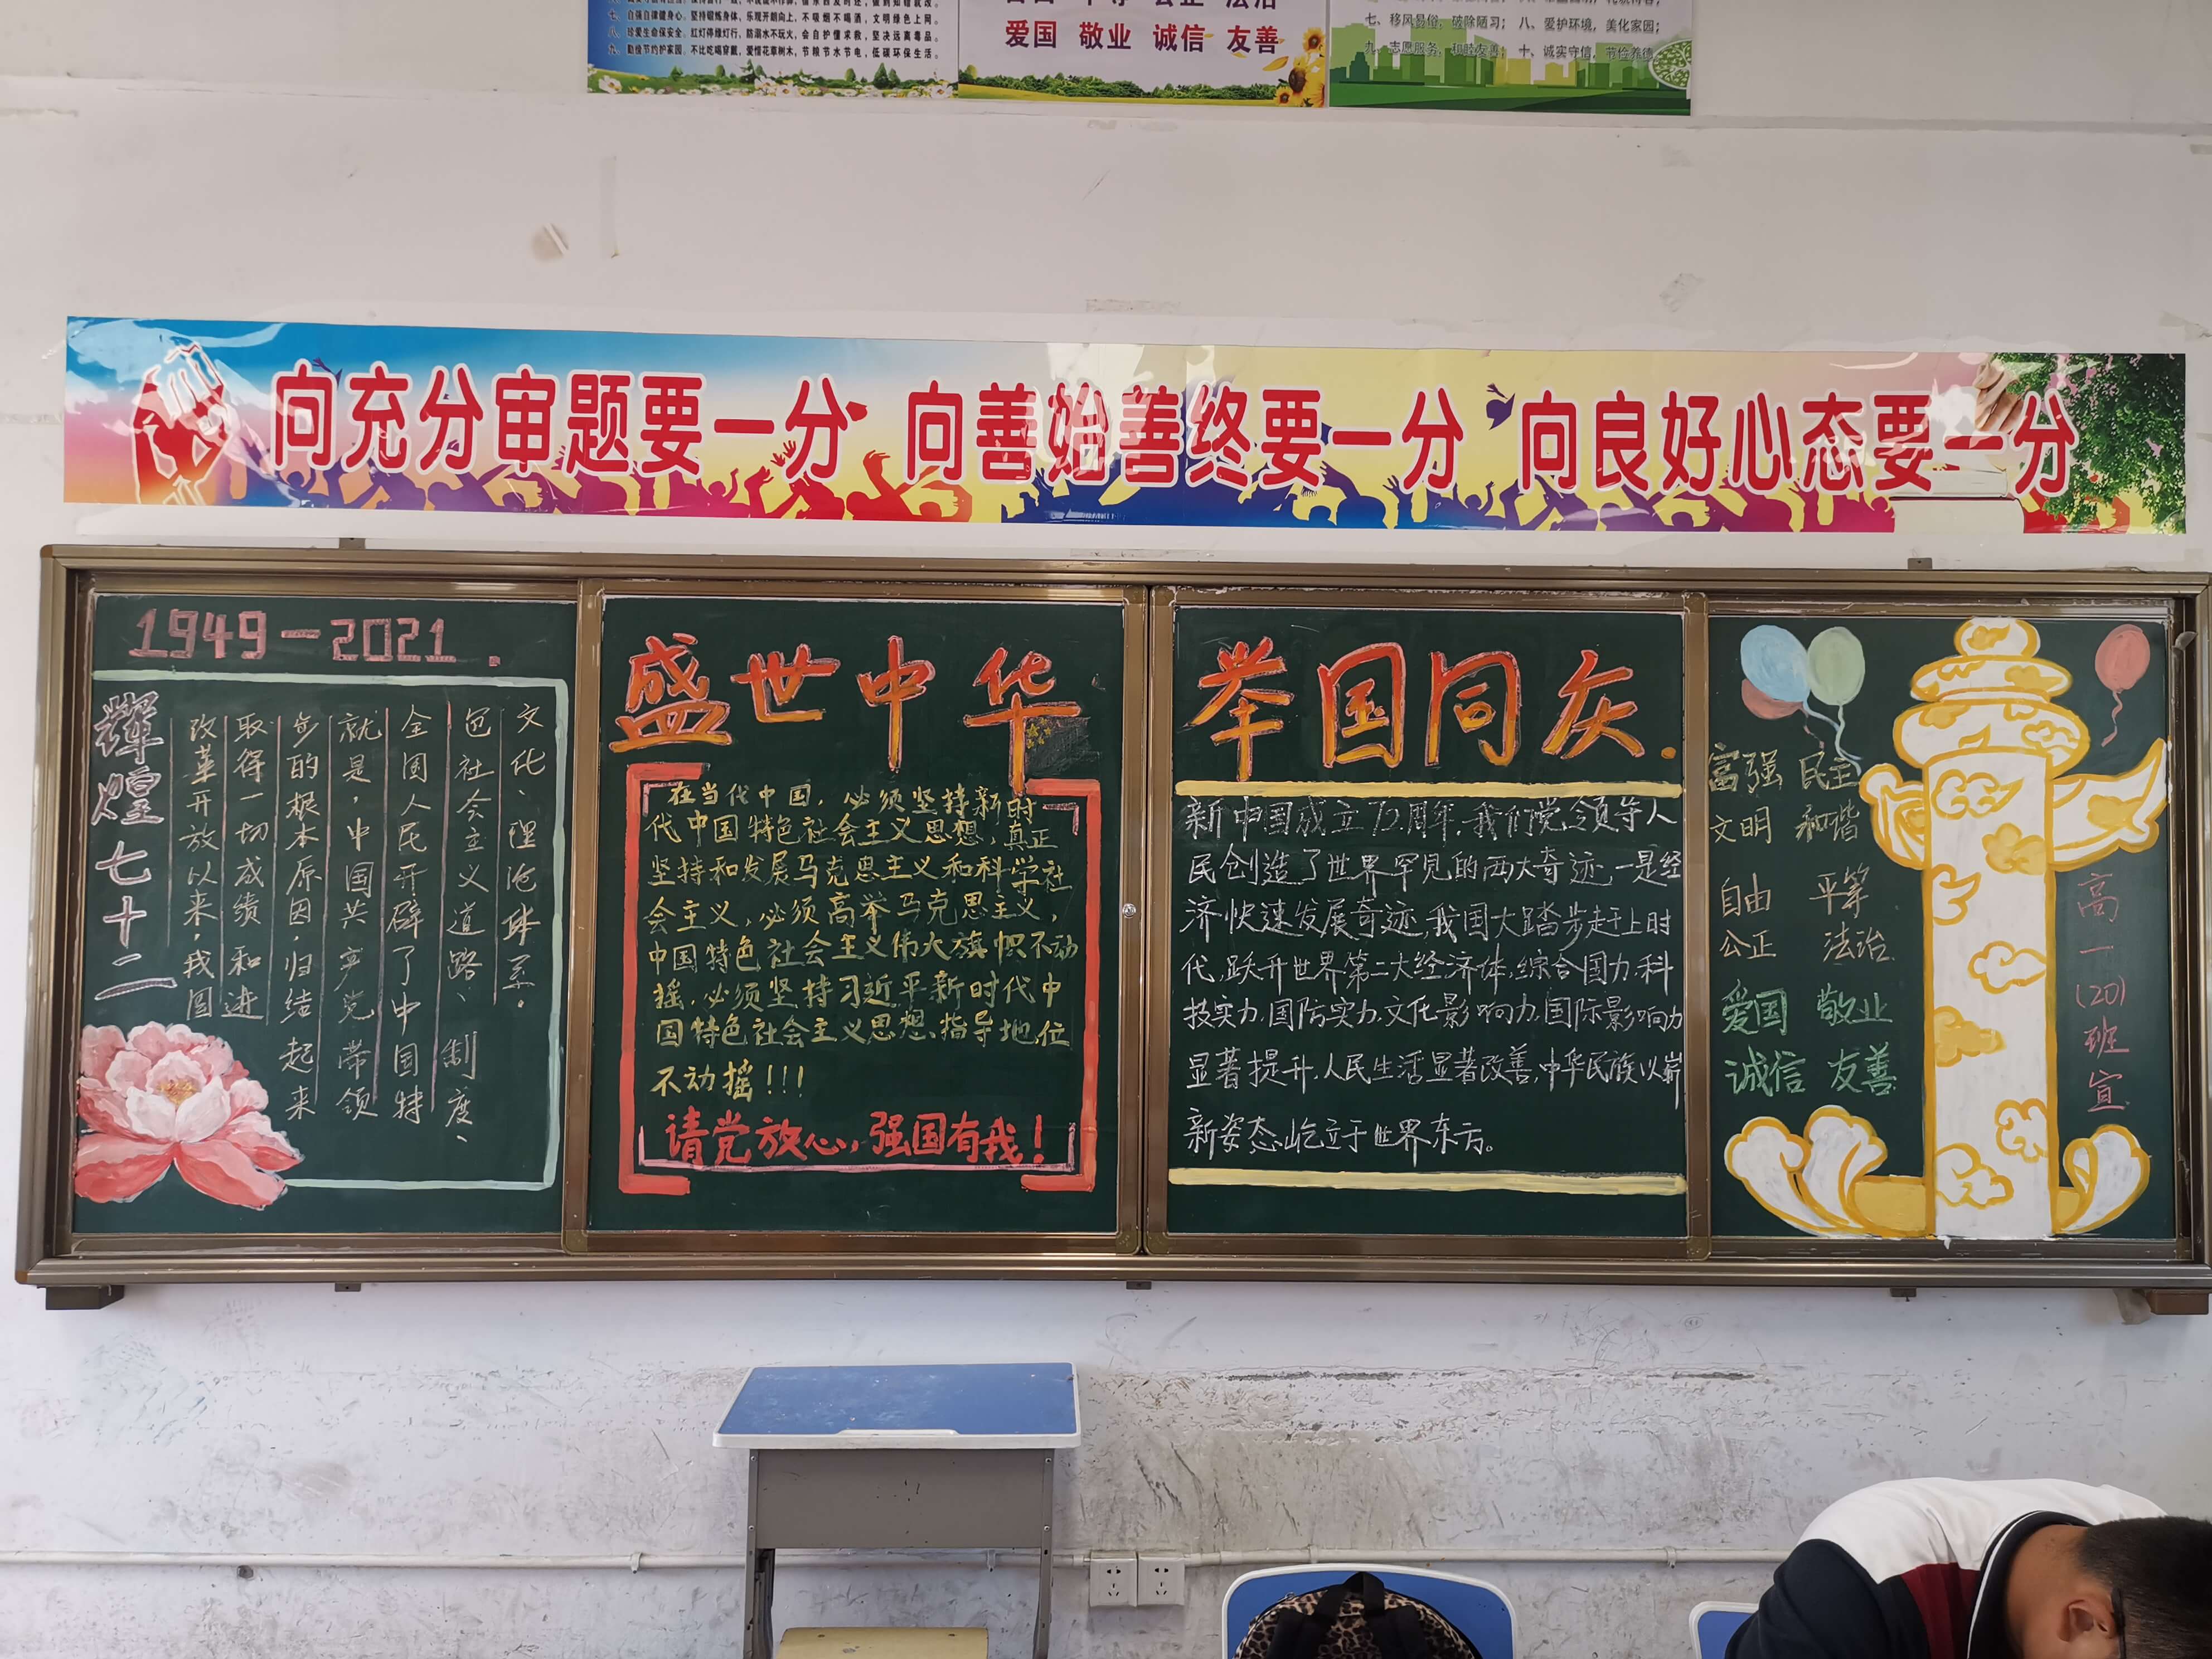 七、自强自律健身心。坚持锻炼身体，乐观开朗向上，不吸烟不喝酒，文明绿色上网。
八、珍爱生命保安全。红灯停绿灯行，防溺水不玩火，会自护懂求救，坚决远离毒品。
九、勤俭节约护家园。不比吃喝穿戴，爱惜花草树木，节粮节水节电，低碳环保生活。
爱国 敬业 诚信 友善
七、移风易俗，破除陋习；八、爱护环境，美化家园；
九、志愿服务，和睦友善；十、诚实守信，节俭养德
向充分审题要一分 向善始善终要一分 向良好心态要一分
1949-2021.
辉煌七十二
改革开放以来，我国
取得一切成绩和进
步的根本原因，归结起来
就是，中国共产党带领
全国人民开辟了中国特
色社会主义道路、制度、
文化、理论体系。
盛世中华
在当代中国，必须坚持新时
代中国特色社会主义思想，真正
坚持和发展马克思主义和科学社
会主义，必须高举马克思主义，
中国特色社会主义伟大旗帜不动
摇，必须坚持习近平新时代中
国特色社会主义思想指导地位
不动摇！！！
请党放心，强国有我！
举国同庆.
新中国成立72周年，我们党领导人
民创造了世界罕见的两大奇迹，一是经
济快速发展奇迹，我国大踏步赶上时
代，跃升世界第二大经济体，综合国力，科
技实力，国防实力，文化影响力，国际影响力
显著提升，人民生活显著改善，中华民族以崭
新姿态屹立于世界东方。
富强 民主
文明 和谐
自由 平等
公正 法治
爱国 敬业
诚信 友善
高一(20)班宣